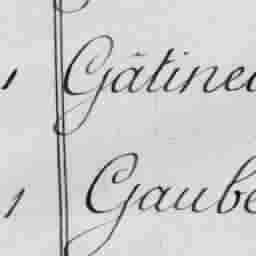 1 Gâtine
1 Gaube